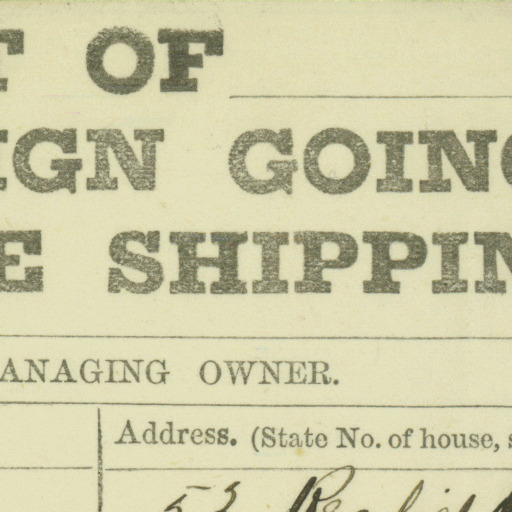 T OF
IGN GOING
E SHIPPIN
ANAGING OWNER.
Address. (State No. of house, s
53